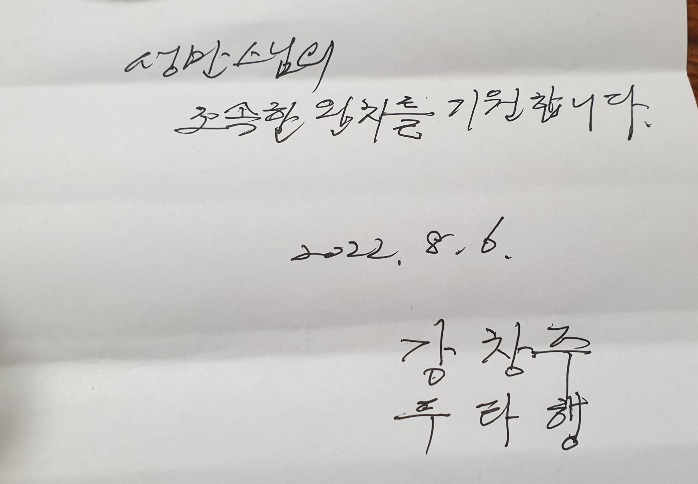 성만스님의
조속한 완차를 기원합니다.
2022. 8. 6.
강 창 주
두 타 행